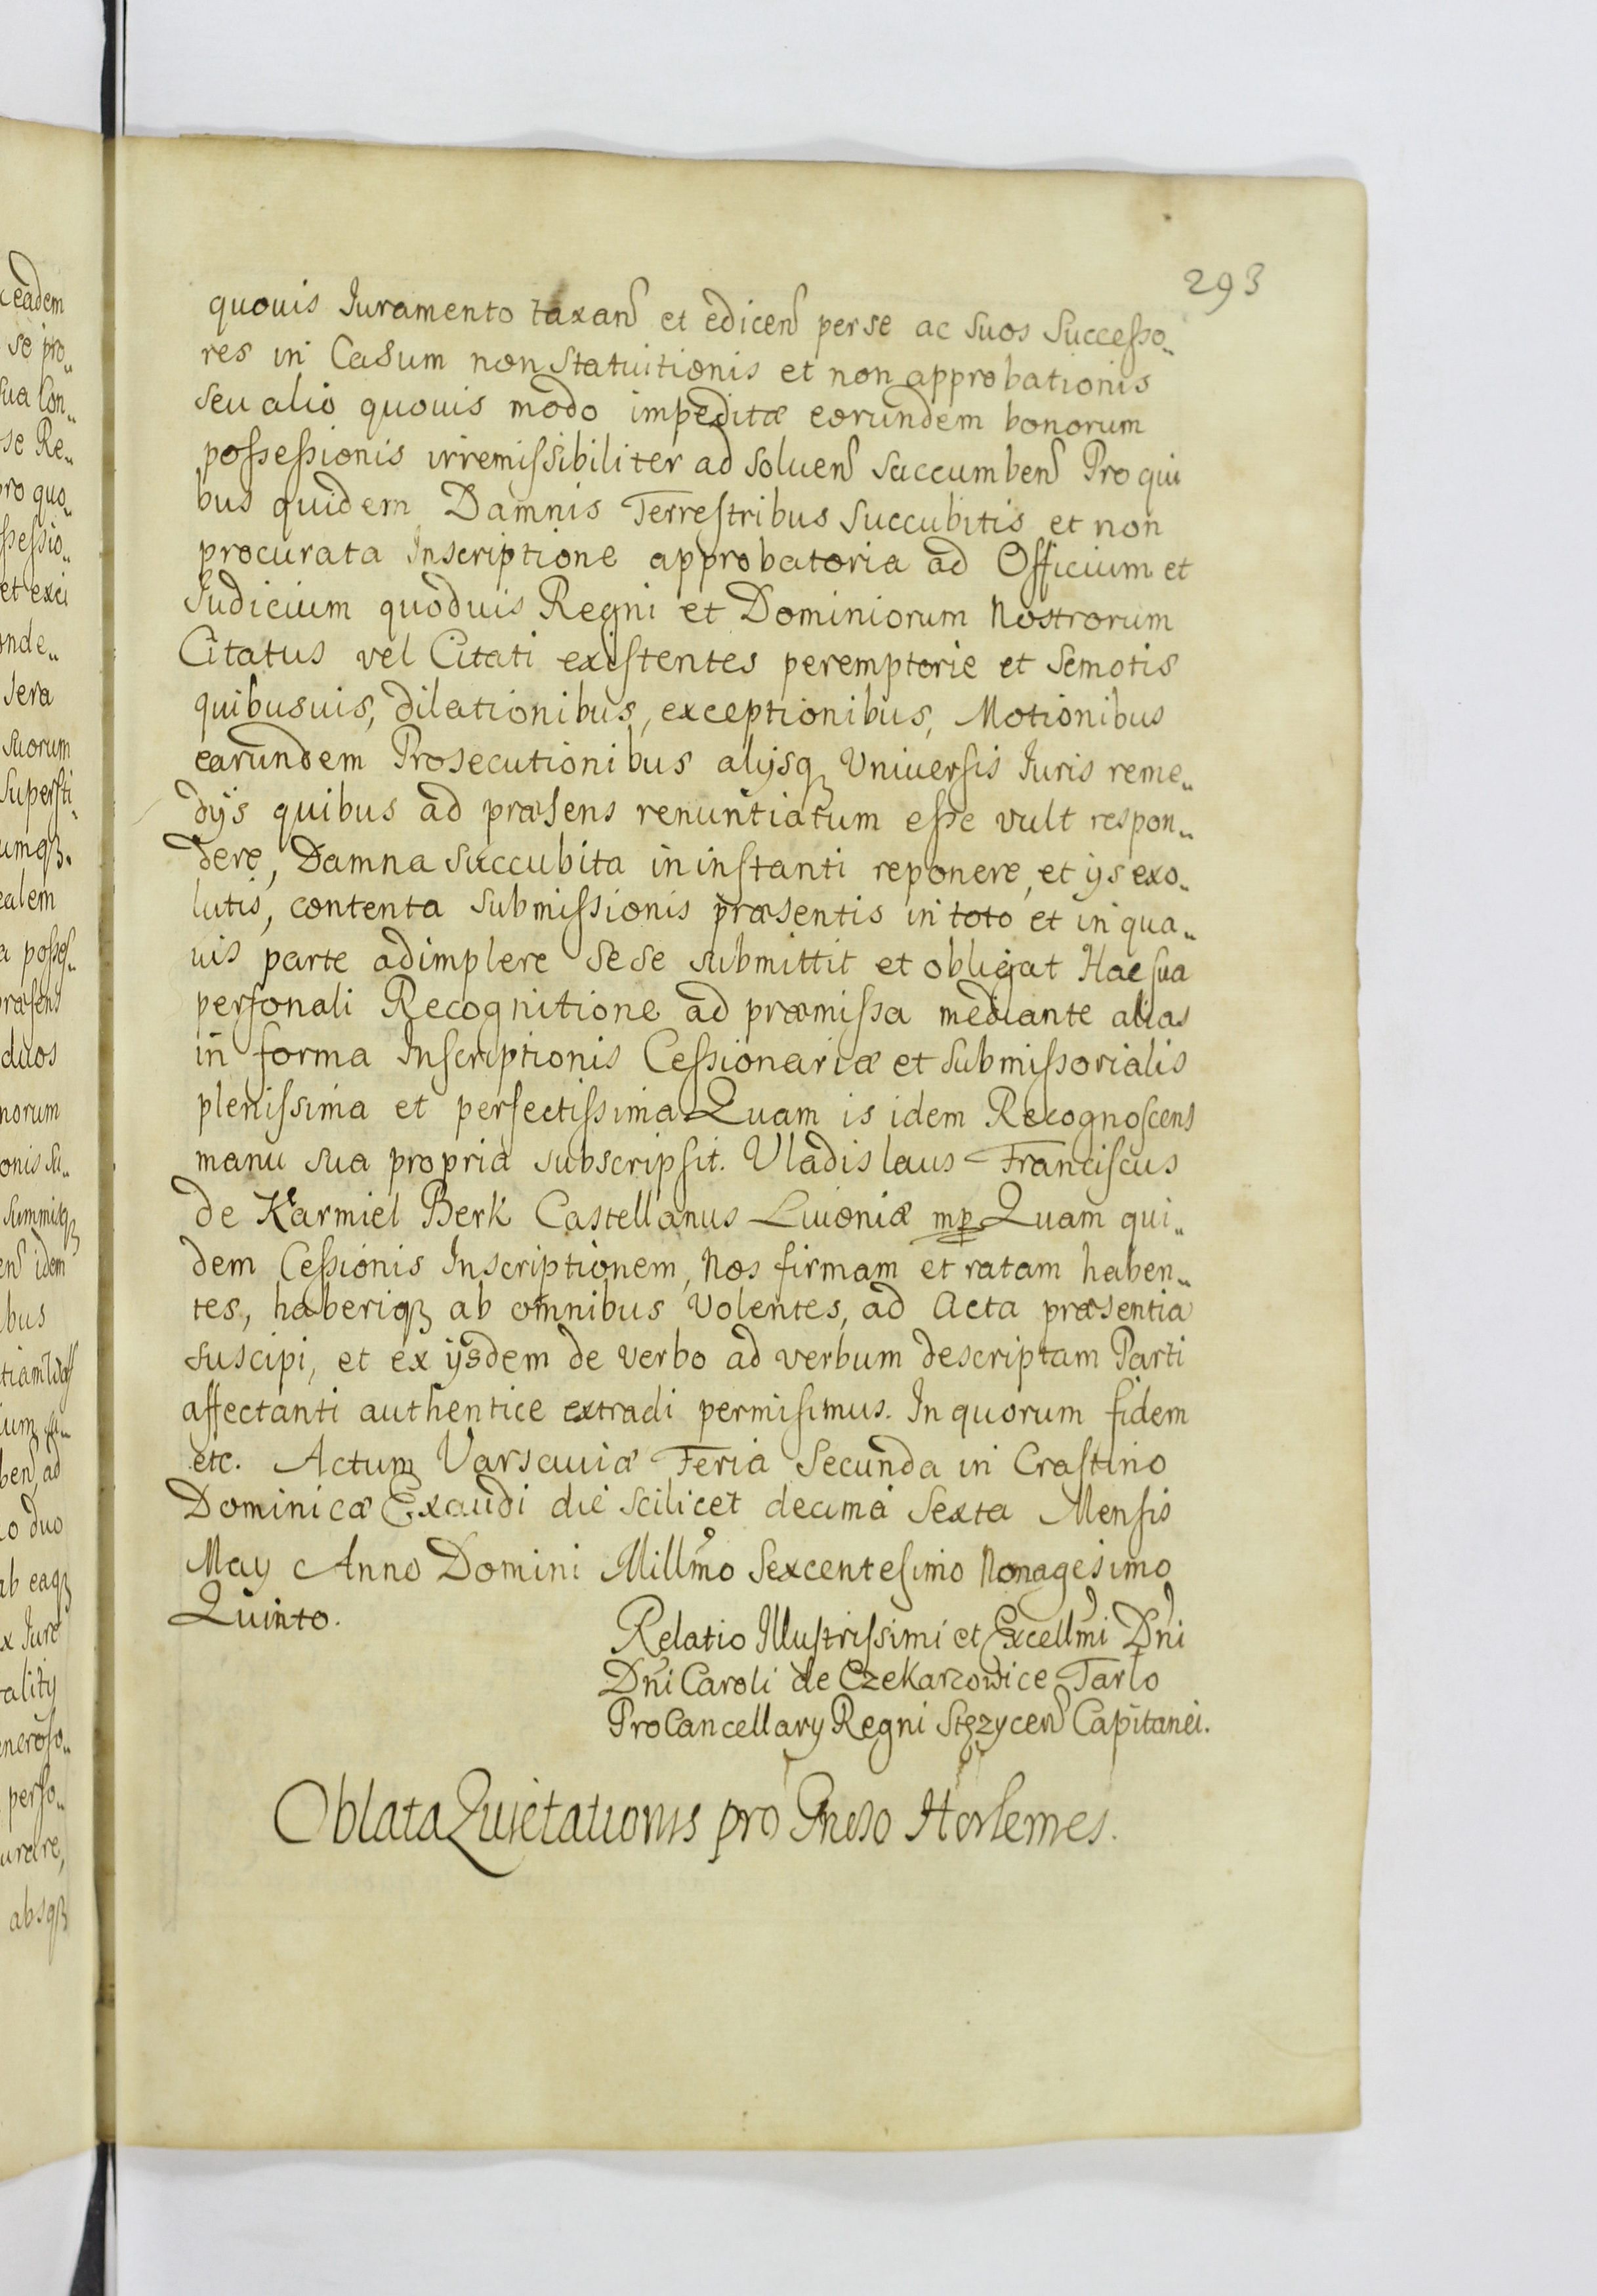 293
quouis Iuramento taxan et edicen per se ac suos Successo„
res in Casum non statuitionis et non approbationis
seu alio quouis modo impeditæ eorundem bonorum
possessionis irremissibiliter ad soluen succumben Pro qui
bus quidem Damnis Terrestribus succubitis et non
procurata Inscriptione approbatoria ad Officium et
Iudicium quoduis Regni et Dominiorum Nostrorum
Citatus vel Citati existentes peremptorie et semotis
quibusuis, dilationibus, exceptionibus, Motionibus
earundem Prosecutionibus alijsq3 Vniuersis Iuris reme„
dijs quibus ad præsens renuntiatum esse vult respon„
dere, Damna succubita in instanti reponere, et ijs exo„
lutis, contenta submissionis præsentis in toto et in qua„
uis parte adimplere sese submittit et obligat Hac sua
personali Recognitione ad præmissa mediante alias
in forma Inscriptionis Cessionariæ et submissorialis
plenissima et perfectissima Quam is idem Recognoscens
manu sua propria subscripsit. Vladislaus Franciscus
de Karmiel Berk Castellanus Liuoniæ mp Quam qui„
dem Cessionis Inscriptionem, Nos firmam et ratam haben„
tes, haberiq3 ab omnibus Volentes, ad Acta præsentia
suscipi, et ex ijsdem de verbo ad verbum descriptam Parti
affectanti authentice extradi permisimus. In quorum fidem
etc. Actum Varsauiæ Feria Secunda in Crastino
Dominicæ Exaudi die scilicet decima Sexta Mensis
May Anno Domini Millmo Sexcentesimo Nonagesimo
Quinto.
Relatio Illustrissimi et Excellmi Dni
Dni Caroli de Czekarzowice Tarło
ProCancellary Regni Stęzycen Capitanei.
Oblata Quietationis pro Gnoso Horlemes.